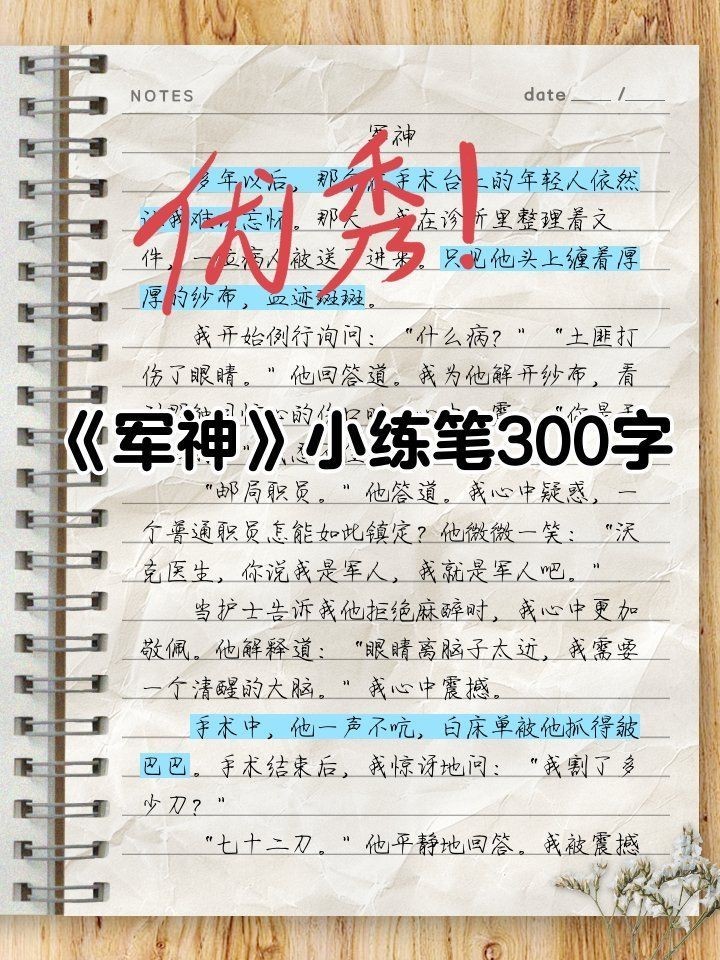 NOTES date ____ /____
军神
优秀！
多年以后，那个在手术台上的年轻人依然
让我难以忘怀。那天，我在诊所里整理着文
件，一位病人被送了进来。只见他头上缠着厚
厚的纱布，血迹斑斑。
我开始例行询问：“什么病？”“土匪打
伤了眼睛。”他回答道。我为他解开纱布，看
《军神》小练笔300字
“邮局职员。”他答道。我心中疑惑，一
个普通职员怎能如此镇定？他微微一笑：“沃
克医生，你说我是军人，我就是军人吧。”
当护士告诉我他拒绝麻醉时，我心中更加
敬佩。他解释道：“眼睛离脑子太近，我需要
一个清醒的大脑。”我心中震撼。
手术中，他一声不吭，白床单被他抓得皱
巴巴。手术结束后，我惊讶地问：“我割了多
少刀？”
“七十二刀。”他平静地回答。我被震撼